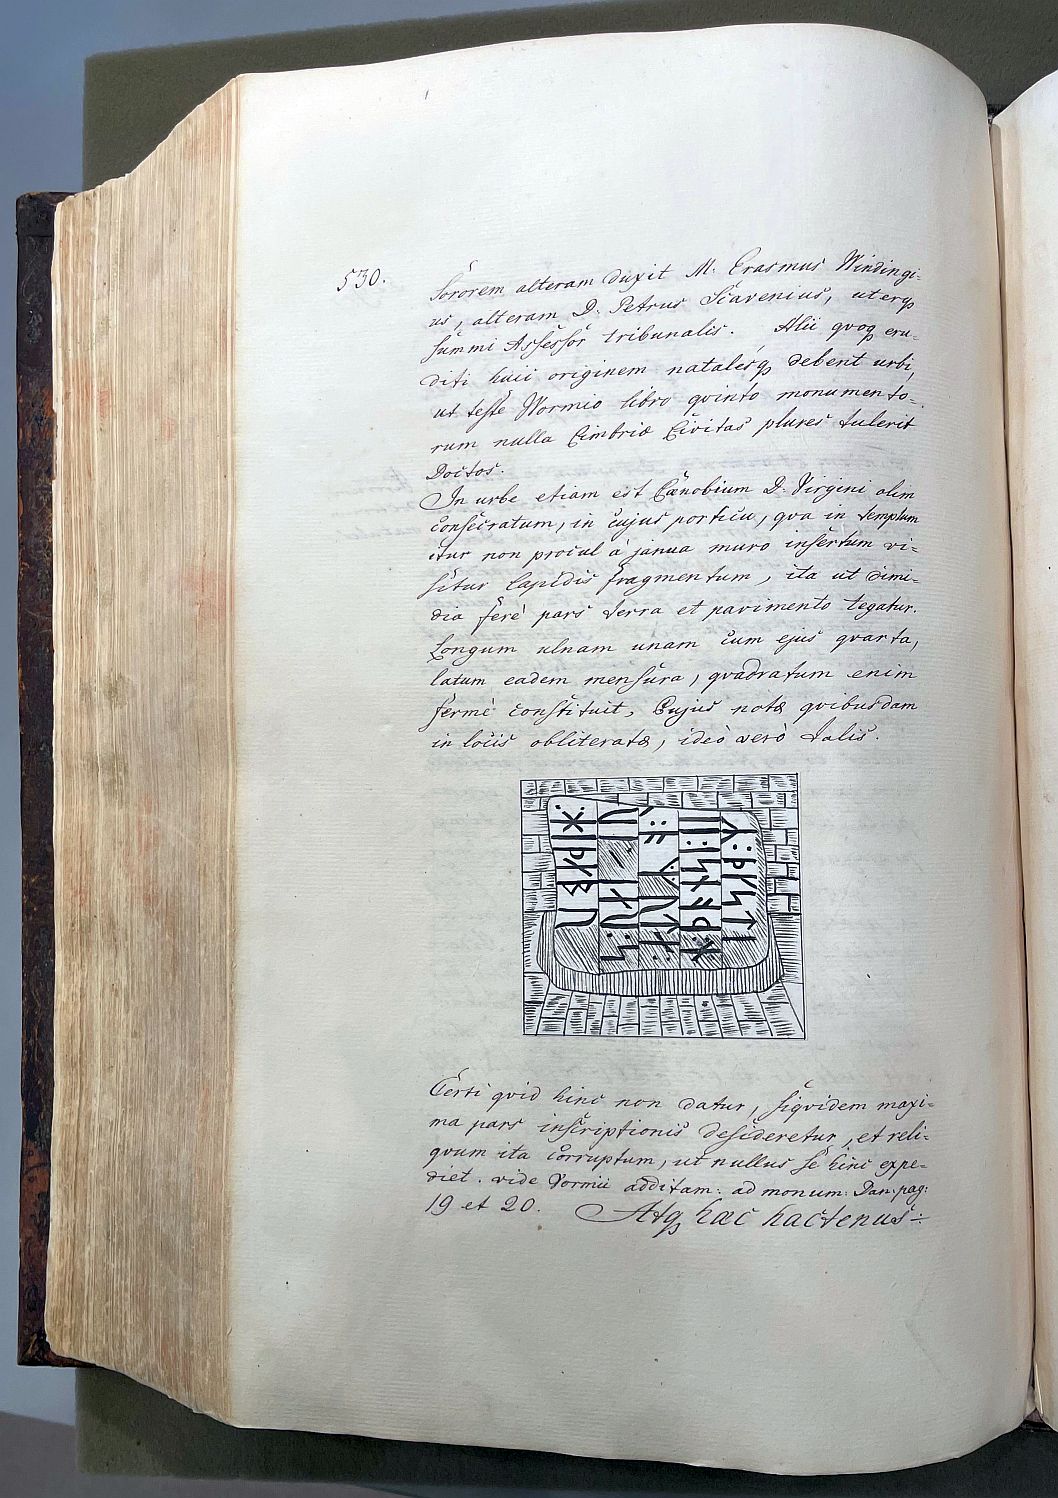 530.
Sororem alteram duxit M. Erasmus Windingi=
us, alteram D. Petrus Scavenius, uterq
summi Assessor tribunalis. Alii qvoq eru=
diti huic originem natalesq debent urbi,
ut teste Wormio libro qvinto monumento=
rum nulla Cimbriæ Civitas plures tulerit
Doctos.
In urbe etiam est Cænobium D. Virgini olim
consecratum, in cujus porticu, qva in templum
itur non procul à janua muro insertum vi=
situr lapidis fragmentum, ita ut dimi=
dia ferè pars terra et pavimento tegatur.
Longum ulnam unam cum ejus qvarta,
latum eadem mensura, qvadratum enim
fermè constituit, Cujus notæ qvibusdam
in locis obliteratæ, ideò verò talis.
Certi qvid hinc non datur, siqvidem maxi=
ma pars inscriptionis desideretur, et reli=
qvum ita corruptum, ut nullus se hinc expe=
diet. vide Wormii additam: ad monum: Dan: pag:
19 et 20. Atq hæc hactenus÷